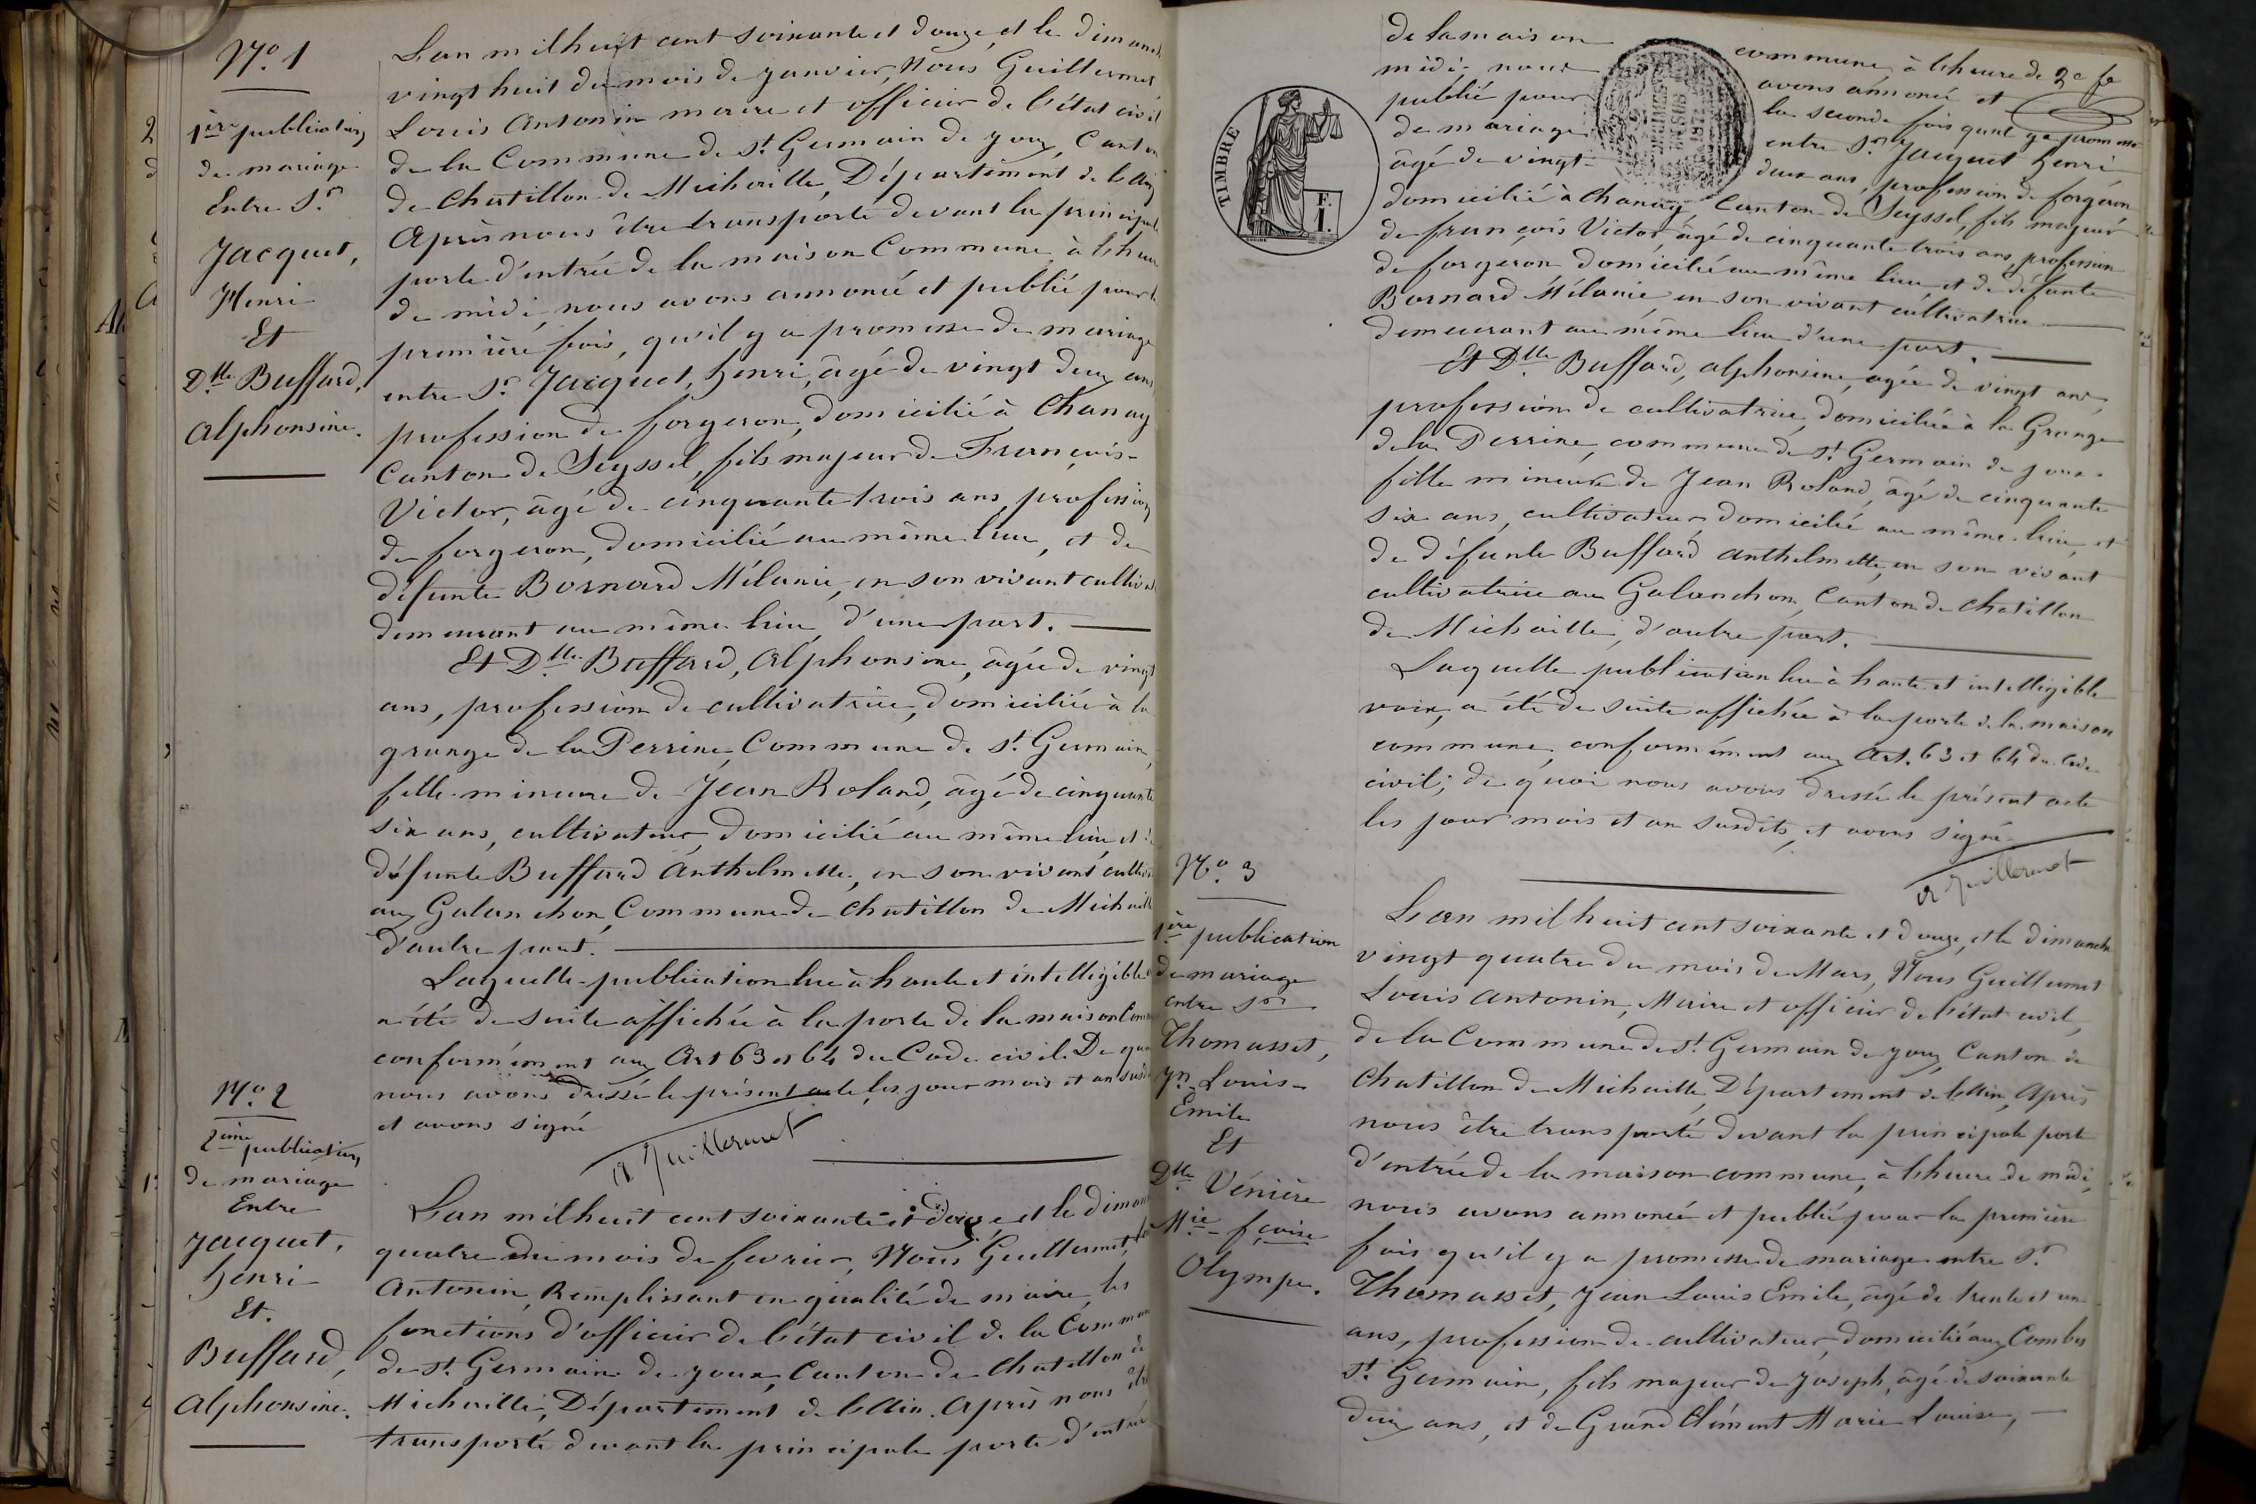 No. 1
1ère publication
de mariage
Entre Sr.
Jacquet,
Henri
Et
Dlle Buffard,
Alphonsine.
L'an mil huit cent soixante et douze, et le dimanche
vingt huit du mois de janvier, Nous Guillermet
Louis Antonin maire et officier de l'état civil
de la Commune de St. Germain de Joux, Canton
de Chatillon de Michaille, Département de l'Ain
Après nous être transporté devant la principale
porte d'entrée de la maison Commune, à l'heure
de midi, nous avons annoncé et publié pour la
première fois, qu'il y a promesse de mariage
entre Sr. Jacquet, Henri, âgé de vingt deux ans,
profession de forgeron, domicilié à Chanay
Canton de Seyssel, fils majeur de François-
Victor, âgé de cinquante trois ans, profession
de forgeron, domicilié au même lieu, et de
défunte Bornard Mélanie, en son vivant cultiva
demeurant au même lieu, d'une part.
Et Dlle Buffard, Alphonsine, âgée de vingt
ans, profession de cultivatrice, domiciliée à la
grange de la Perrine, Commune de St. Germain,
fille mineure de Jean Roland, âgé de cinquante
six ans, cultivateur, domicilié au même lieu, et de
défunte Buffard Anthelmette, en son vivant cultiva
aux Galanchon, Commune de Chatillon de Michaille
d'autre part.
Laquelle publication lue à haute et intelligible
a été de suite affichée à la porte de la maison Comm
conformément aux Art 63 et 64 du Code civil. De quoi
nous avons dressé le présent acte, les jour mois et an susdits
et avons signé
A Guillermet
No. 2
2ème publication
de mariage
Entre
Jacquet,
henri
Et.
Buffard,
Alphonsine.
L'an mil huit cent soixante et douze, et le dimanche
quatre du mois de fevrier, Nous Guillermet,
Antonin, Remplissant en qualité de maire, les
fonctions d'officier de l'état civil de la Commune
de St. Germain de joux, Canton de Chatillon de
Michaille, Département de l'Ain. Après nous être
transporté devant la principale porte d'entrée
TIMBRE
F.
1.
de la maison commune, à l'heure de
midi, nous avons annoncé et
publié pour la seconde fois qu'il y a promesse
de mariage entre Sr. Jacquet henri
âgé de vingt-deux ans, profession de forgeron
domicilié à Chanay, Canton de Seyssel, fils majeur
de françois Victor, âgé de cinquante trois ans, profession
de forgeron domicilié au même lieu et de défunte
Bornard Mélanie, en son vivant cultivatrice
demeurant au même lieu d'une part.
Et Dlle Buffard, Alphonsine, agée de vingt ans,
profession de cultivatrice, domiciliée à la Grange
de la Perrine, commune de St. Germain de joux.
fille mineure de Jean Roland, âgé de cinquante
six ans, cultivateur, domicilié au même lieu, et
de défunte Buffard Anthelmette, en son vivant
cultivatrice aux Galanchon, Canton de Chatillon
de Michaille, d'autre part.
Laquelle publication lue à haute et intelligible
voix, a été de suite affichée à la porte de la maison
commune, conformément aux Art. 63 et 64 du Code
civil; de quoi nous avons dressé le présent acte
les jour mois et an susdits, et avons signé.
A Guillermet
No. 3
1ère publication
de mariage
entre Sr
Thomasset,
Jn Louis-
Emile
Et
Dlle Vénière
Mie fçoise
Olympe.
L'an mil huit cent soixante et douze, et le dimanche
vingt quatre du mois de Mars, Nous Guillermet
Louis Antonin, Maire et officier de l'état civil,
de la Commune de St. Germain de joux, Canton de
Chatillon de Michaille, Département de l'Ain, Après
nous être transporté devant la principale porte
d'entrée de la maison commune, à l'heure de midi,
nous avons annoncé et publié pour la première
fois qu'il y a promesse de mariage entre Sr.
Thomasset, Jean Louis Emile, âgé de trente et un
ans, profession de cultivateur, domicilié aux Combes
St. Germain, fils majeur de Joseph, âgé de soixante
deux ans, et de Grand Clément Marie Louise,